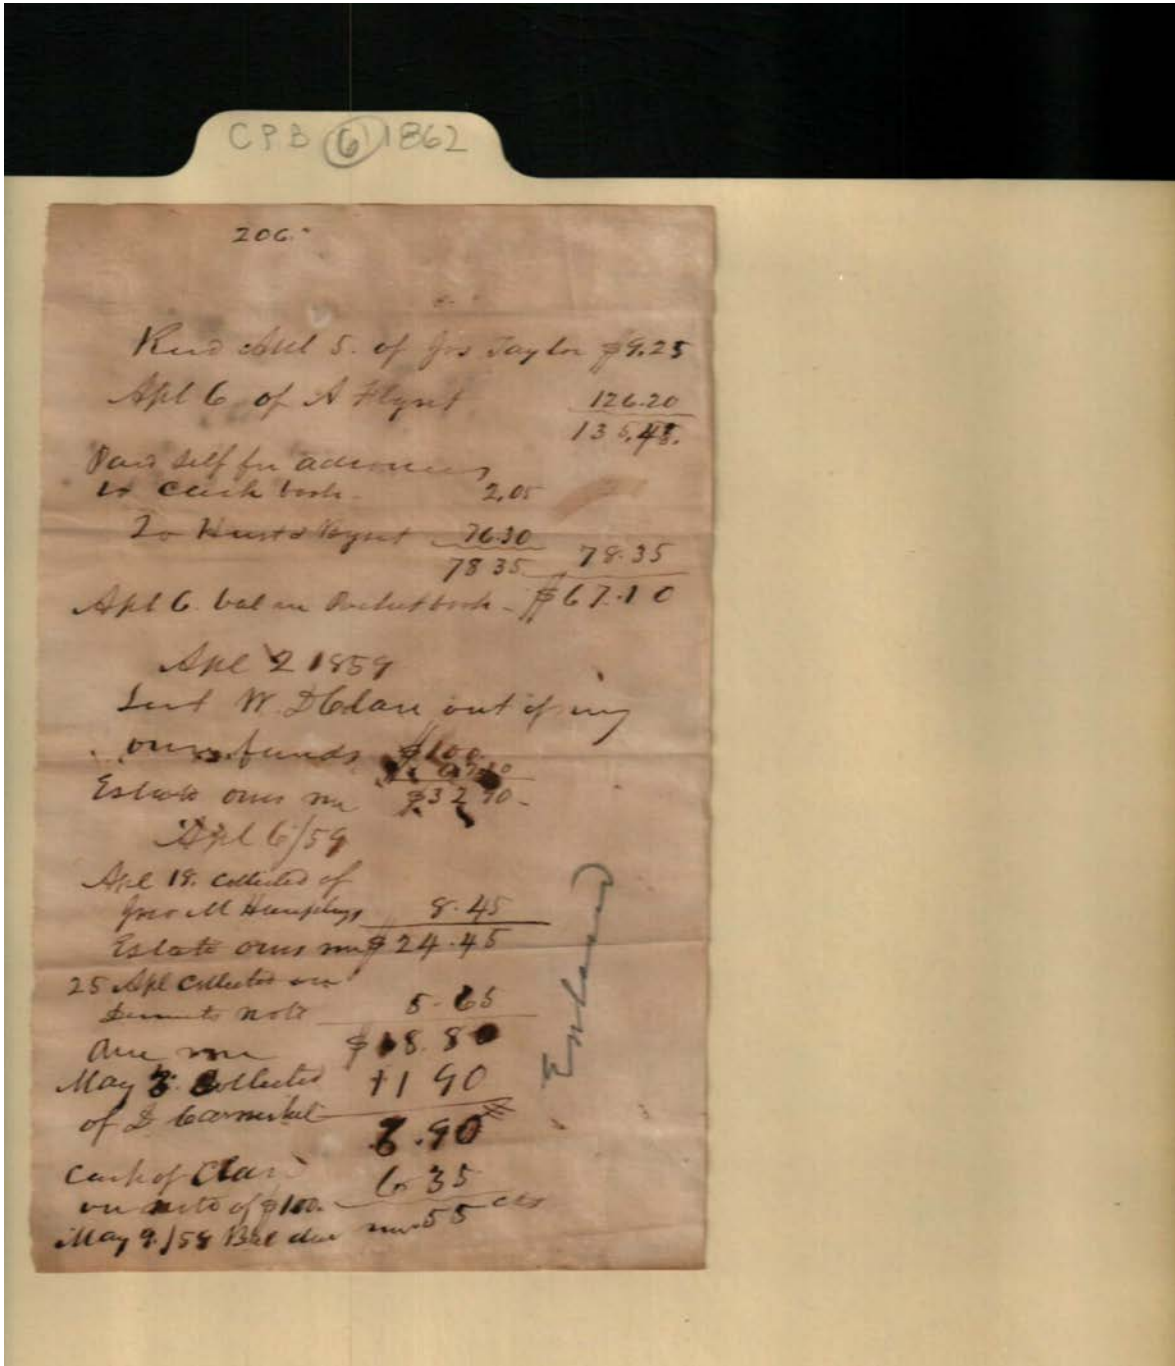 CPB 6 1862
206.
Recd Apl 5. of Jos Taylor $9.25
Apl 6 of A Flynt 126.20
135.45.
Paid self for advances
to cash book. 2.05
To Hunt & Flynt 76.30
78 35 78.35
Apl 6. bal in Pocketbook - $67.10
Apl 2 1859
Lent W. D Clare out of my
own funds $100
Estate owes me $32 90-
Apl 6/59
Apl 18. Collected of
Jno M Humphrys 8.45
Estate owes me $24.45
25 Apl Collected on
note 5-65
due me $18.80
May Collected +1 90
of D Carmichel
6.90
Cash of Clare
on note of $100. 6 35
May 9./59 Bal due me 55 cts